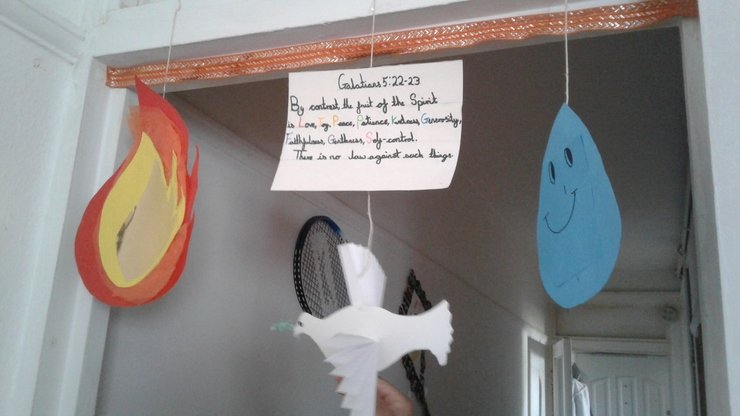 Galatians 5:22-23
By contrast, the fruit of the Spirit
is Love, Joy, Peace, Patience, Kindness, Generosity,
Faithfulness, Gentleness, Self-control.
There is no law against such things